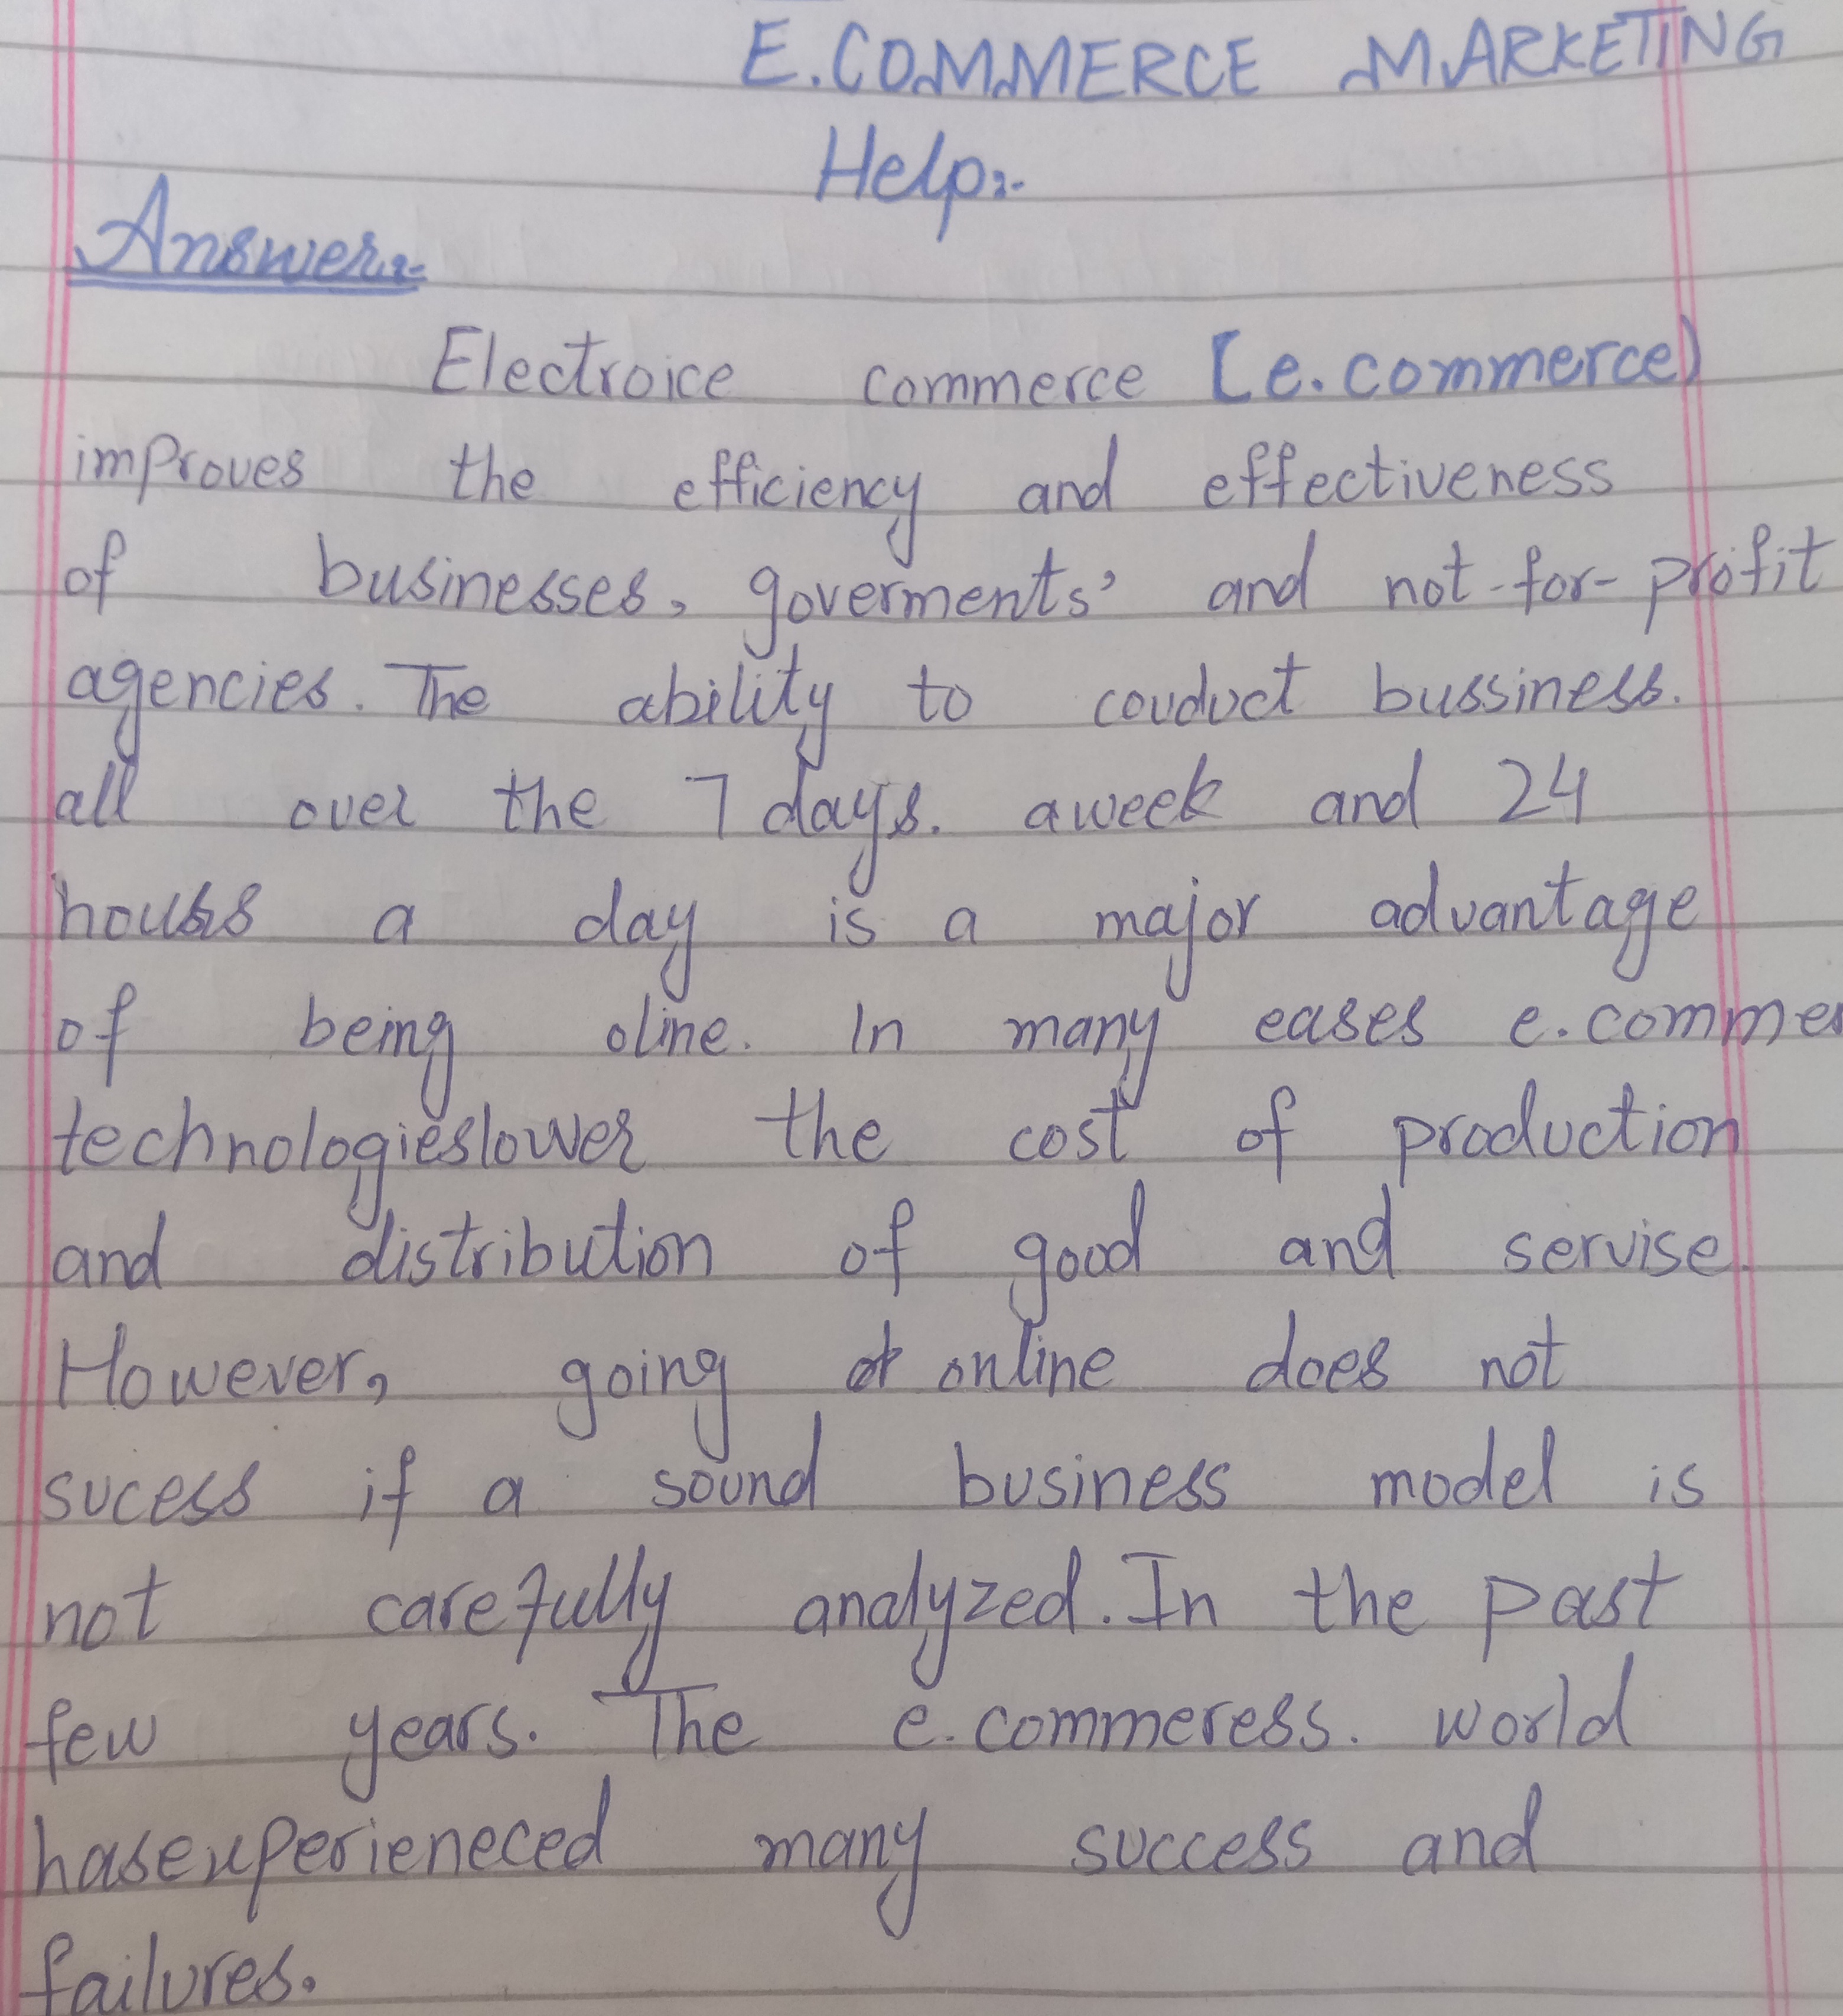 E.COMMERCE MARKETING
Help:-
Answer:-
Electroice commerce [e.commerce)
improves the efficiency and effectiveness
of businesses, goverments' and not-for-profit
agencies. The ability to couduct bussiness.
all over the 7 days. aweek and 24
hours a day is a major advantage
of being oline. In many eases e.commer
technologieslower the cost of production
and distribution of good and servise.
However, going online does not
sucess if a sound business model is
not carefully analyzed. In the past
few years. The e.commeress. world
hasexperieneced many success and
failures.